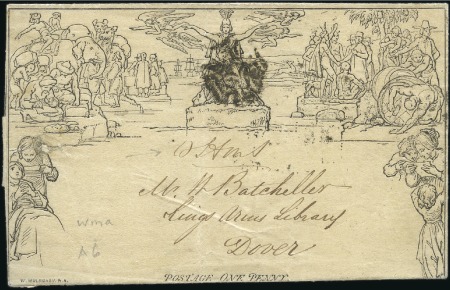 Mr W Batcheller
Kings Arms Library
Dover
wma
A6
W. MULREADY R.A.
POSTAGE ONE PENNY